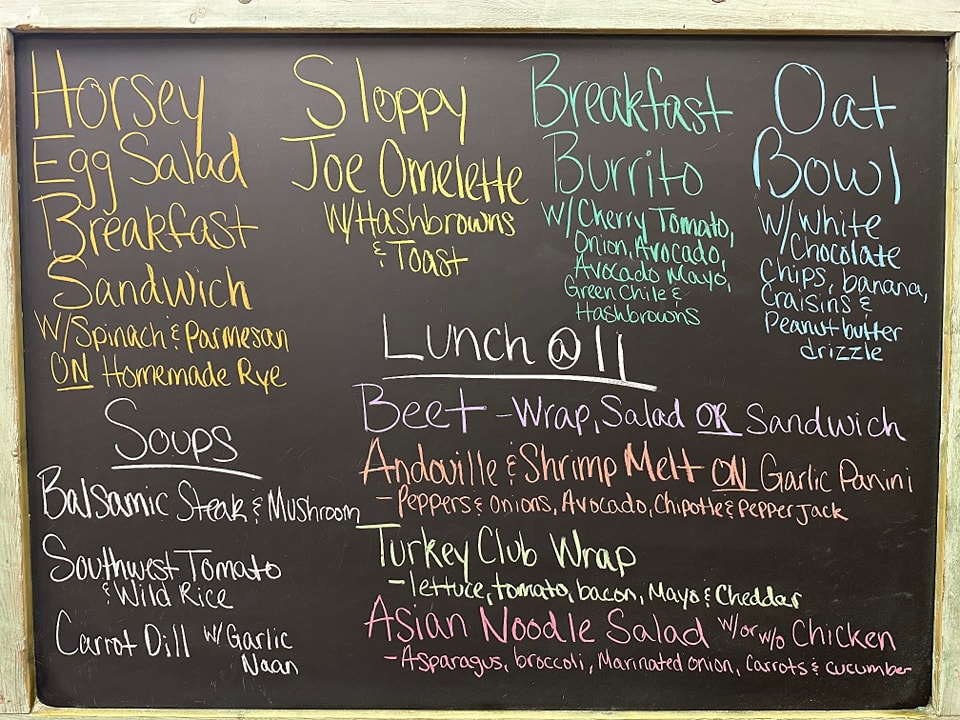 Horsey
Egg Salad
Breakfast
Sandwich
W/Spinach & Parmesan
ON Homemade Rye
Sloppy
Joe Omelette
W/Hashbrowns
& Toast
Breakfast
Burrito
W/Cherry Tomato,
Onion, Avocado,
Avocado Mayo,
Green Chile &
Hashbrowns
Oat
Bowl
W/White
Chocolate
Chips, banana,
Craisins &
Peanut butter
drizzle
Soups
Balsamic Steak & Mushroom
Southwest Tomato
& Wild Rice
Carrot Dill W/Garlic
Naan
Lunch @ 11
Beet - Wrap, Salad OR Sandwich
Andouille & Shrimp Melt ON Garlic Panini
- Peppers & Onions, Avocado, Chipotle & Pepper Jack
Turkey Club Wrap
- lettuce, tomato, bacon, Mayo & Cheddar
Asian Noodle Salad w/or w/o Chicken
- Asparagus, broccoli, Marinated onion, Carrots & cucumber